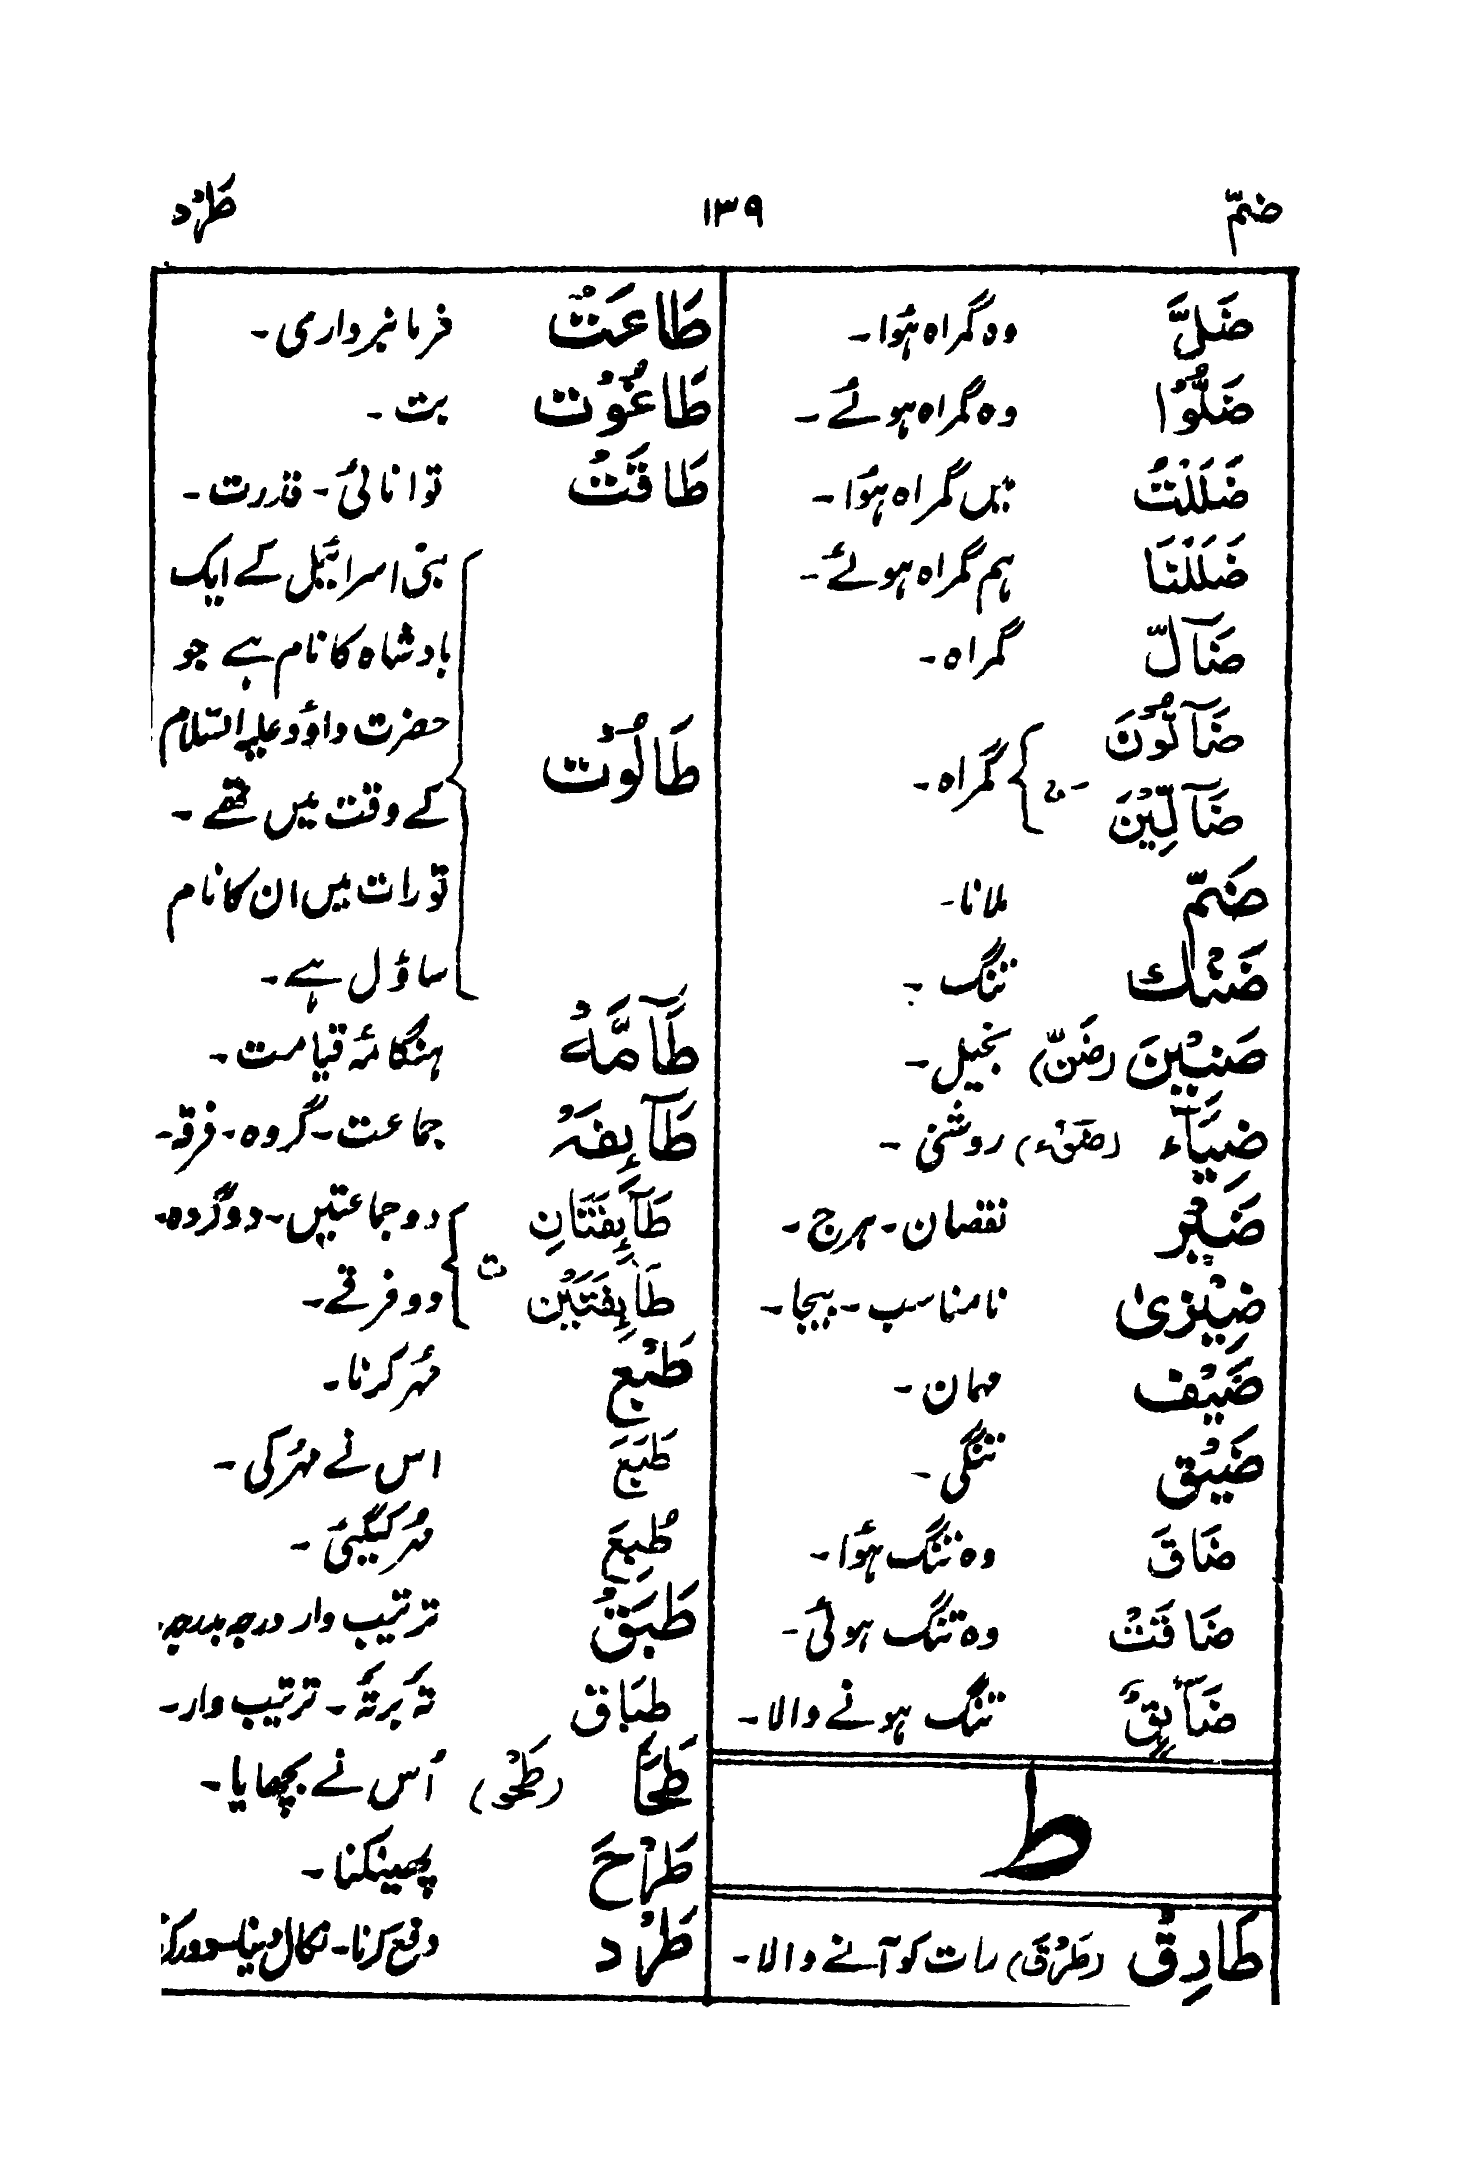 ضمّ ۱۳۹ طَرْد
ضَلَّ وہ گمراہ ہُوا۔
ضَلُّوْا وہ گمراہ ہوئے۔
ضَلَلْتُ میں گمراہ ہُوا۔
ضَلَلْنَا ہم گمراہ ہوئے۔
ضَآلّ گمراہ۔
ضَآلُّوْنَ
ضَآلِّیْنَ ۔ن گمراہ۔
ضَمّ ملانا۔
ضَنْك تنگ۔
ضَنِیْنَ (ضَنّ) بخیل۔
ضِیَآء (ضَوْء) روشنی۔
ضَیْر نقصان۔ ہرج۔
ضِیْزٰی نامناسب۔ بیجا۔
ضَیْف مہمان۔
ضَیْق تنگی۔
ضَاقَ وہ تنگ ہُوا۔
ضَاقَتْ وہ تنگ ہوئی۔
ضَآئِقٌ تنگ ہونے والا۔
ط
طَارِقٌ (طَرْق) رات کو آنے والا۔
طَاعَتٌ فرمانبرداری۔
طَاغُوْت بت۔
طَاقَتٌ توانائی۔ قدرت۔
طَالُوْت بنی اسرائیل کے ایک
بادشاہ کا نام ہے جو
حضرت داؤد علیہ السّلام
کے وقت میں تھے۔
تورات میں ان کا نام
ساؤل ہے۔
طَآمَّہ ہنگامۂ قیامت۔
طَآئِفَہ جماعت۔ گروہ۔ فرقہ۔
طَآئِفَتَانِ دو جماعتیں۔ دو گروہ۔
طَآئِفَتَیْن ث دو فرقے۔
طَبْع مُہر کرنا۔
طَبَعَ اس نے مہُر کی۔
طُبِعَ مہُر کیگئی۔
طَبَقٌ ترتیب وار درجہ بدرجہ۔
طبَاق تَہ بَر تَہ۔ ترتیب وار۔
طَحَا (طَحْو) اُس نے بچھایا۔
طَرْحَ پھینکنا۔
طَرْد دفع کرنا۔ نکال دینا۔ دور کرنا